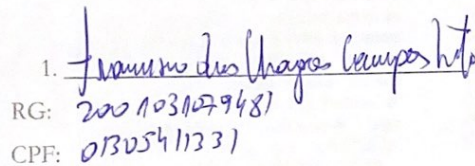 1. Francisco das Chagas Campos Neto
RG: 2001031079481
CPF: 01305411331